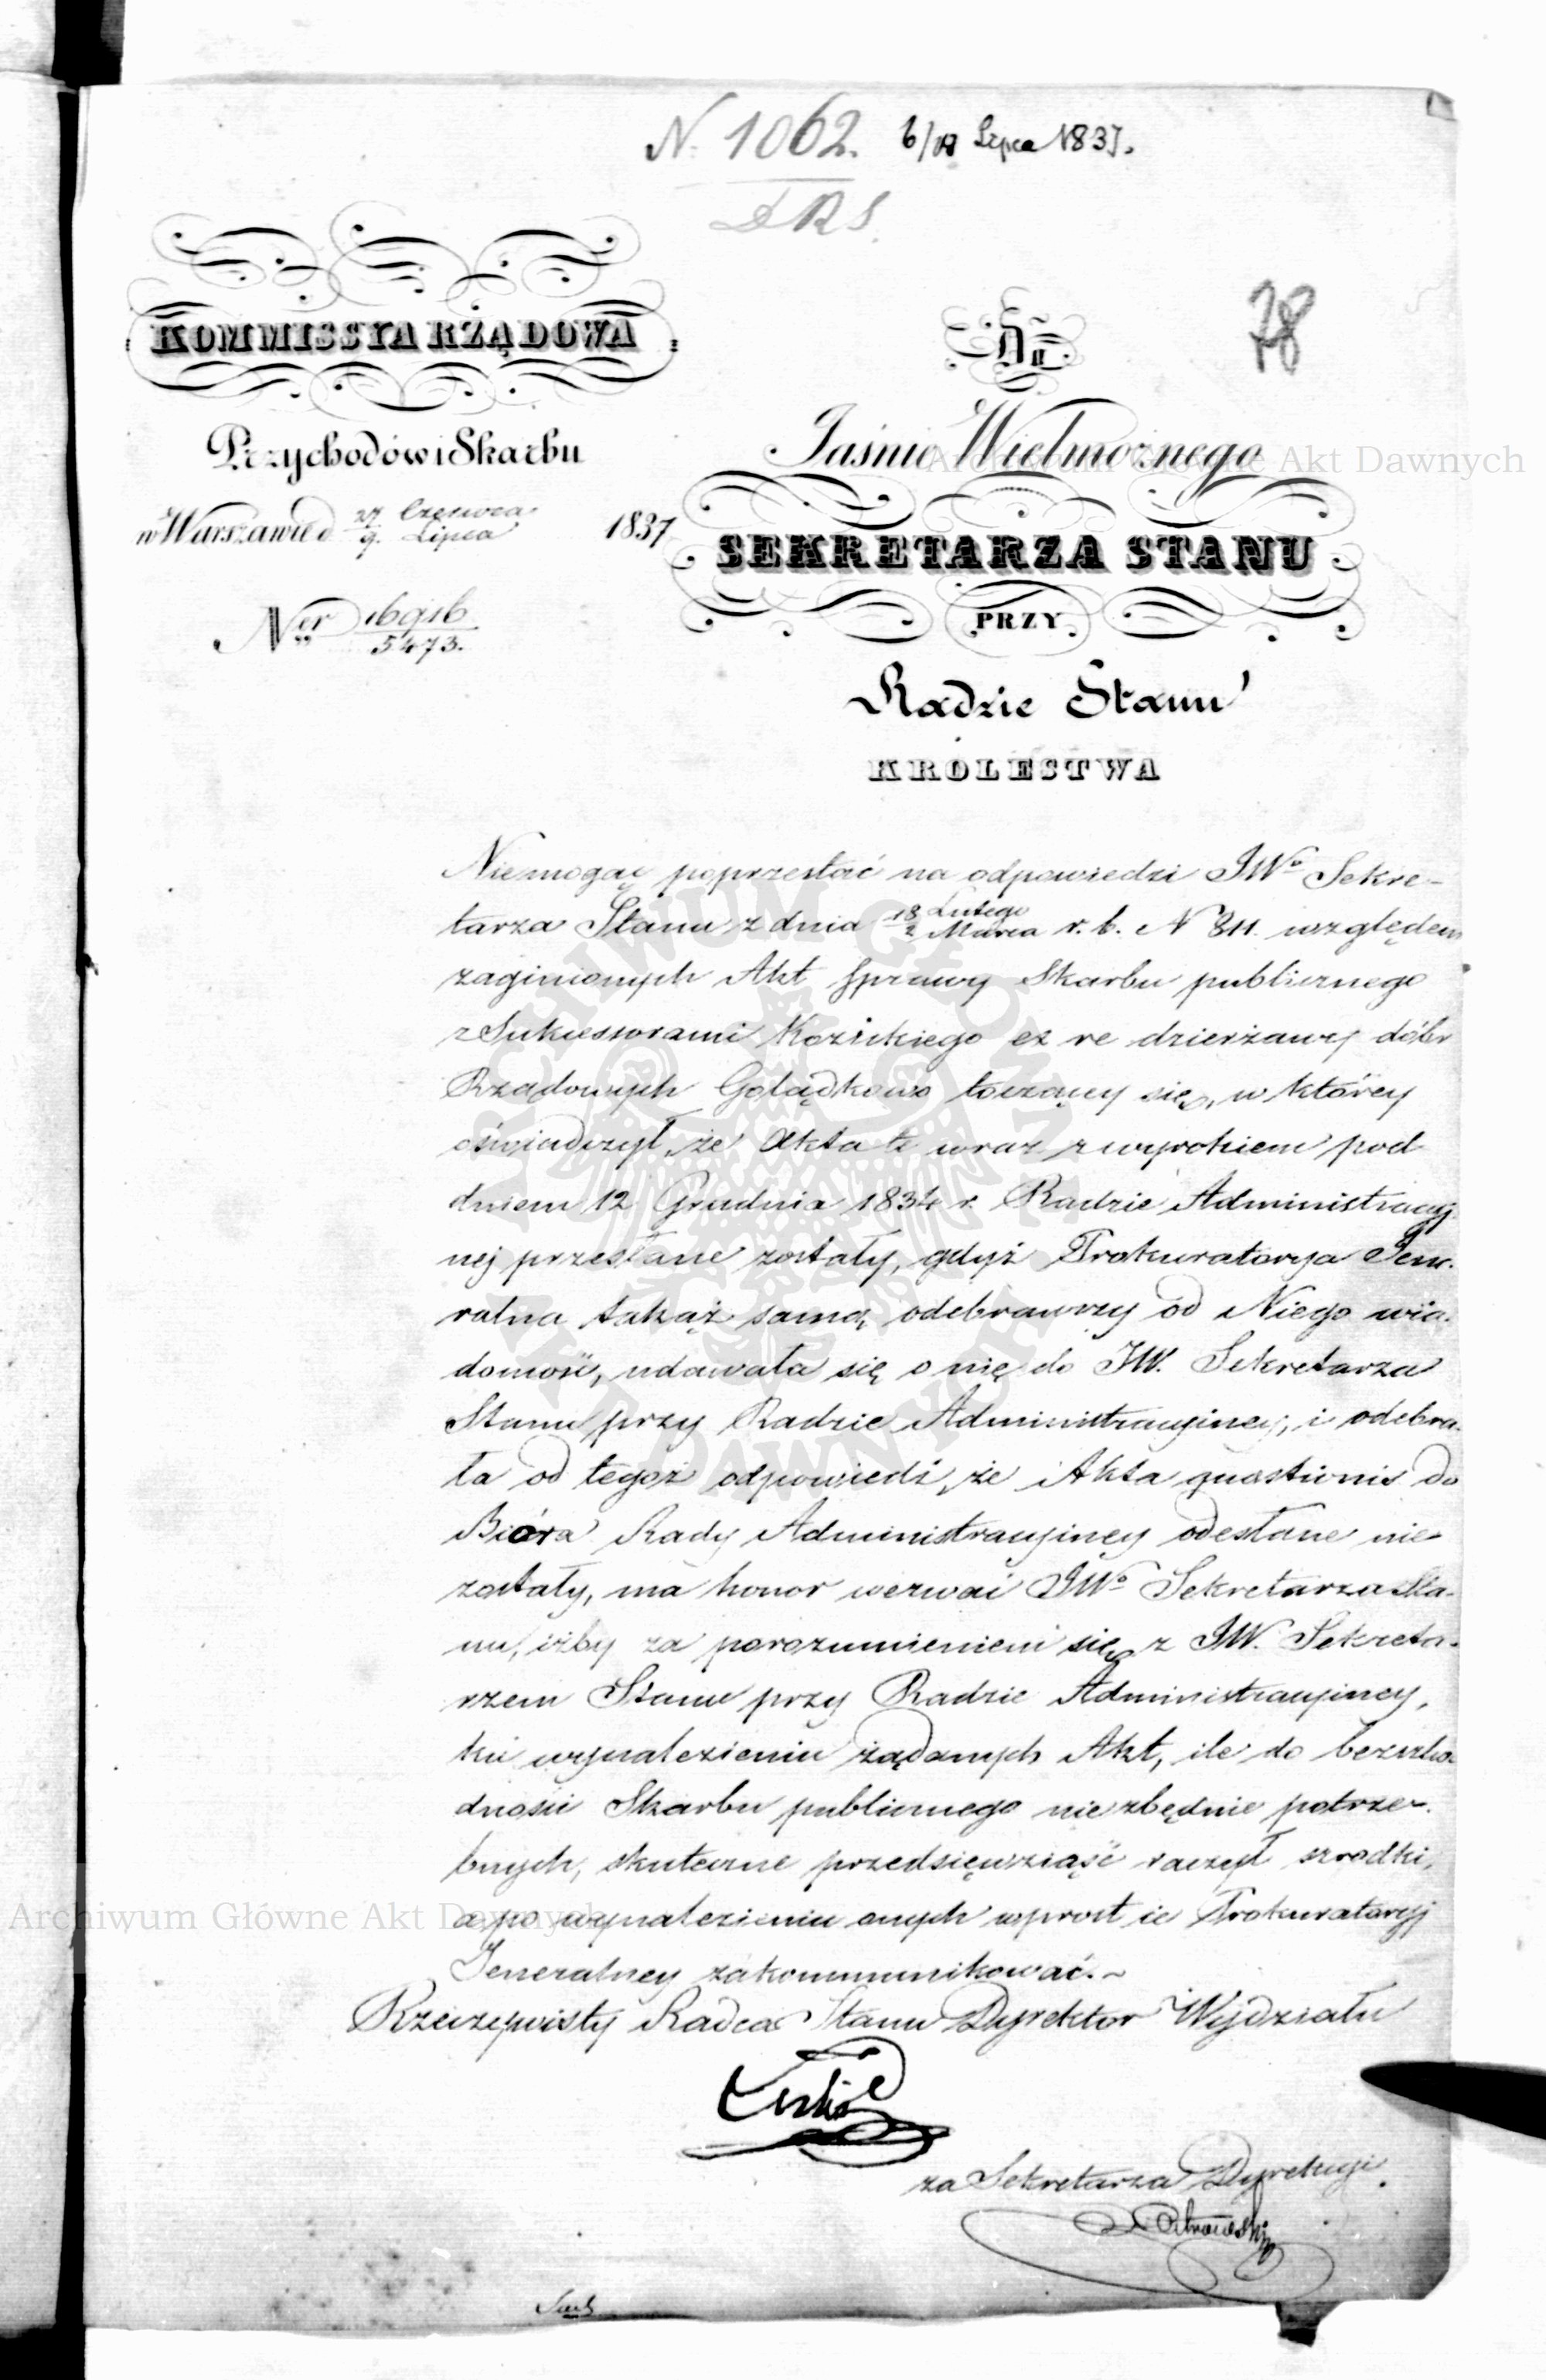 N. 1062. 6/18 Lipca 1837.
D R S.
78
KOMMISSYA RZĄDOWA
Przychodów i Skarbu
w Warszawie d 27 Czerwca / 9. Lipca 1837
Ner 16916 / 5473.
Do
Jaśnie Wielmożnego
SEKRETARZA STANU
PRZY
Radzie Stanu
KROLESTWA
Niemogąc poprzestać na odpowiedzi JWo Sekre-
tarza Stanu z dnia 18 Lutego / 2 Marca r. b. N 311. względem
zaginionych Akt sprawy Skarbu publicznego
z Sukcessorami Kozickiego ex re dzierżawy dóbr
Rządowych Golądkowo toczący się, w którey
oświadczył, że Akta te wraz z wyrokiem pod
dniem 12 Grudnia 1834 r. Radzie Administracyj
nej przesłane zostały, gdyż Prokuratorya Jene.
ralna takąż samą odebrawszy od Niego wia.
domość, udawała się o nię do JW. Sekretarza
Stanu przy Radzie Administracyjney, i odebra.
ła od tegoż odpowiedź, że Akta quaestionis do
Bióra Rady Administracyjney odesłane nie
zostały, ma honor wezwać JWo Sekretarza Sta-
nu, iżby za porozumieniem się z JW. Sekreta-
rzem Stanu przy Radzie Administracyjney,
ku wynalezieniu żądanych Akt, ile do bezszko
dności Skarbu publicznego niezbędnie potrze-
bnych, skuteczne przedsięwziąść raczył szrodki,
a po wynalezieniu onych wprost ie Prokuratoryj
Jeneralney zakommunikować. ~
Rzeczywisty Radca Stanu Dyrektor Wydziału
za Sekretarza Dyrekcyi
Archiwum Główne Akt Dawnych
Archiwum Główne Akt Dawnych
ARCHIWUM GŁÓWNE AKT DAWNYCH